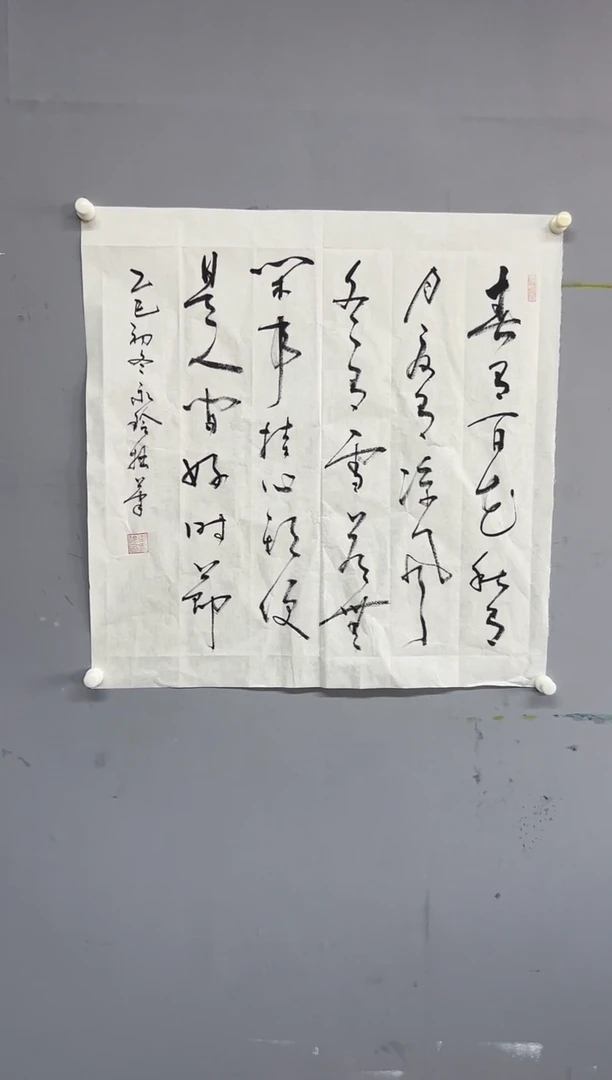 春有百花秋有
月夏有凉风
冬有雪若无
闲事挂心头便
是人间好时节
乙巳初冬永玲拙笔